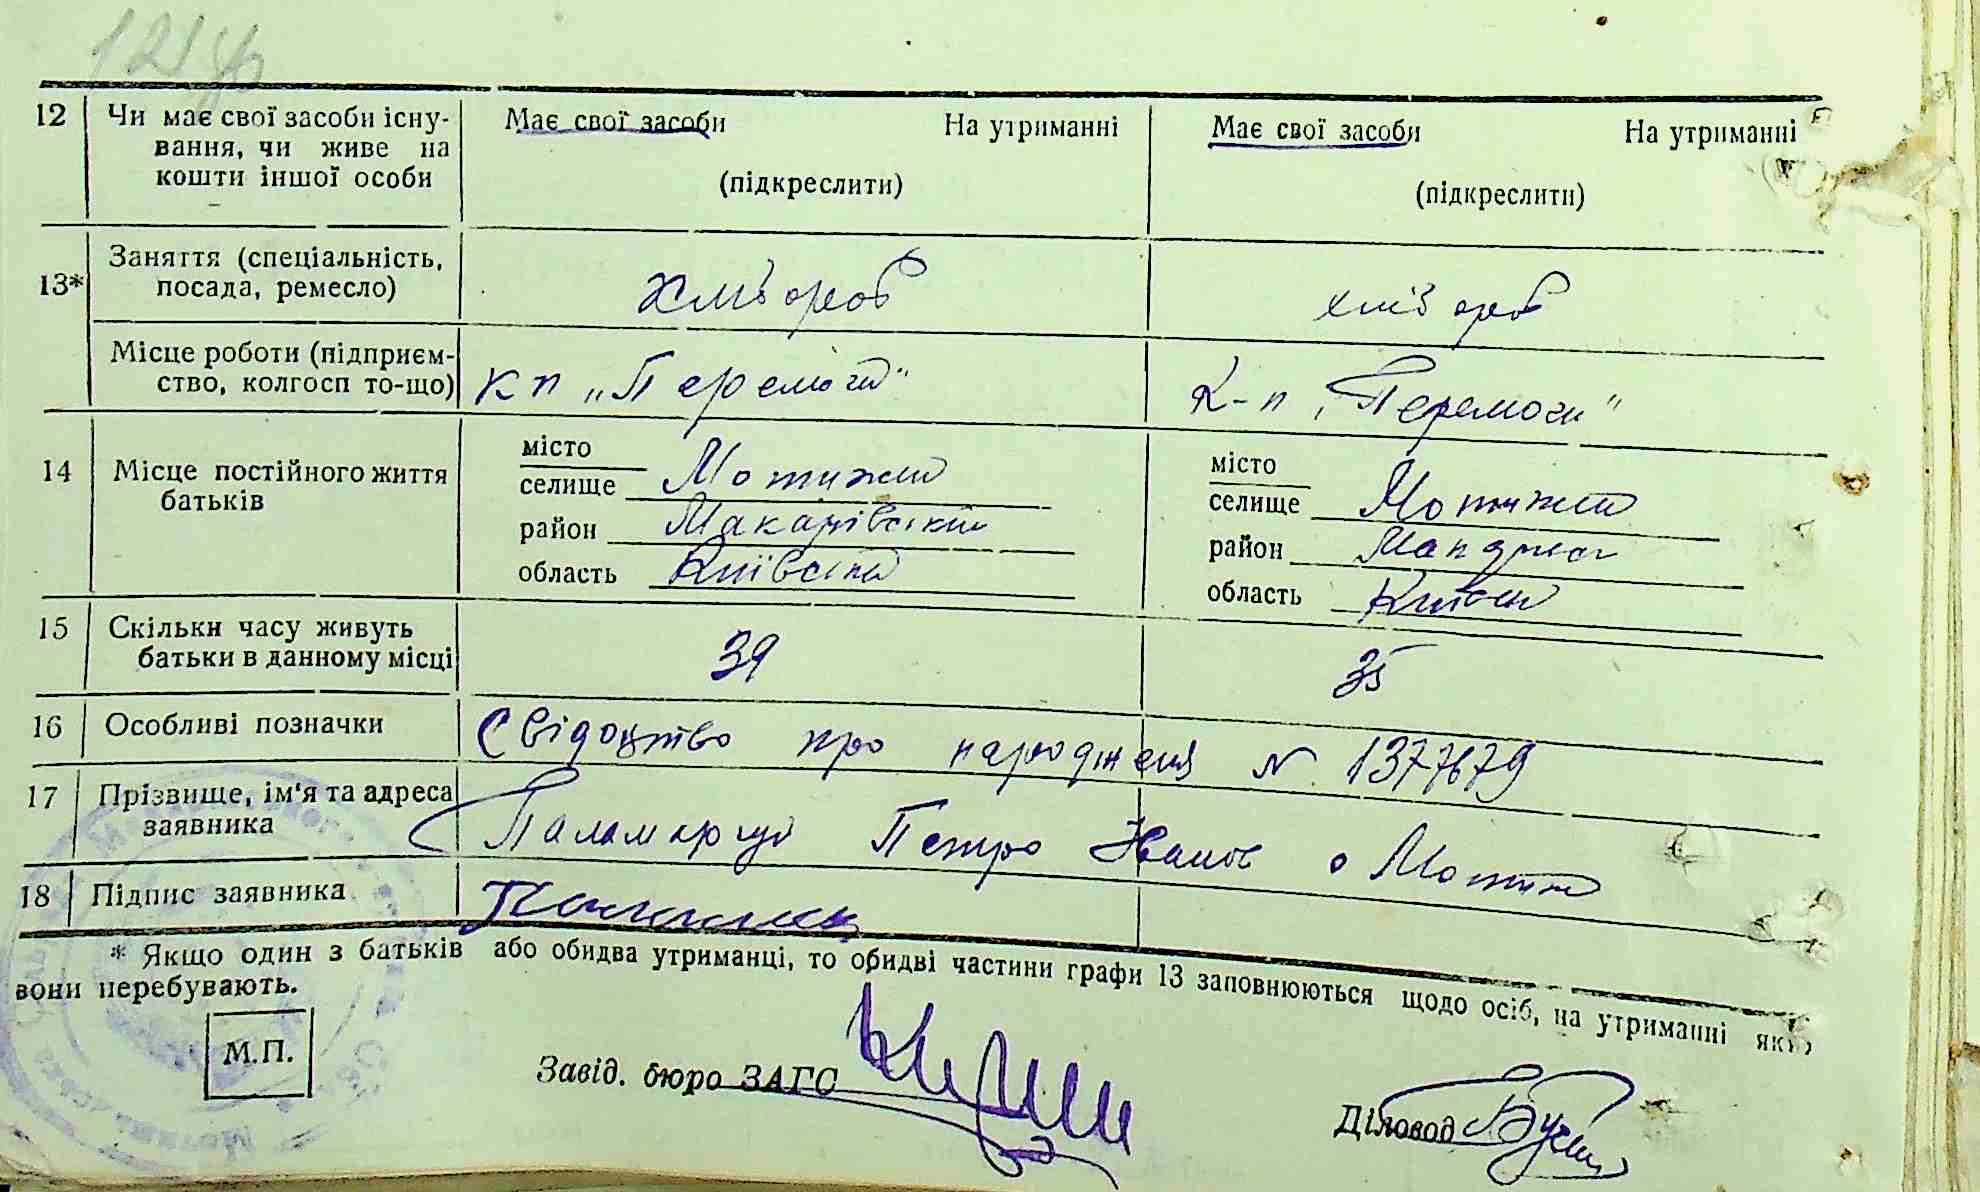 12 Чи має свої засоби існу- Має свої засоби На утриманні Має свої засоби На утриманні
вання, чи живе на
кошти іншої особи (підкреслити) (підкреслити)
13* Заняття (спеціальність,
посада, ремесло) хлібороб хлібороб
Місце роботи (підприєм-
ство, колгосп то-що) кп „Перемоги" К-п „Перемоги"
14 Місце постійного життя
батьків
місто місто
селище Мотижин селище Мотижин
район Макарівський район
область Київський область
15 Скільки часу живуть
батьки в данному місці 39 35
16 Особливі позначки Свідоцтво про народженя N. 1377679
17 Прізвище, ім'я та адреса
заявника Петро Іванов с Мотиж
18 Підпис заявника
* Якщо один з батьків або обидва утриманці, то обидві частини графи 13 заповнюються щодо осіб, на утриманні яких
вони перебувають.
М.П.
Завід. бюро ЗАГС
Діловод